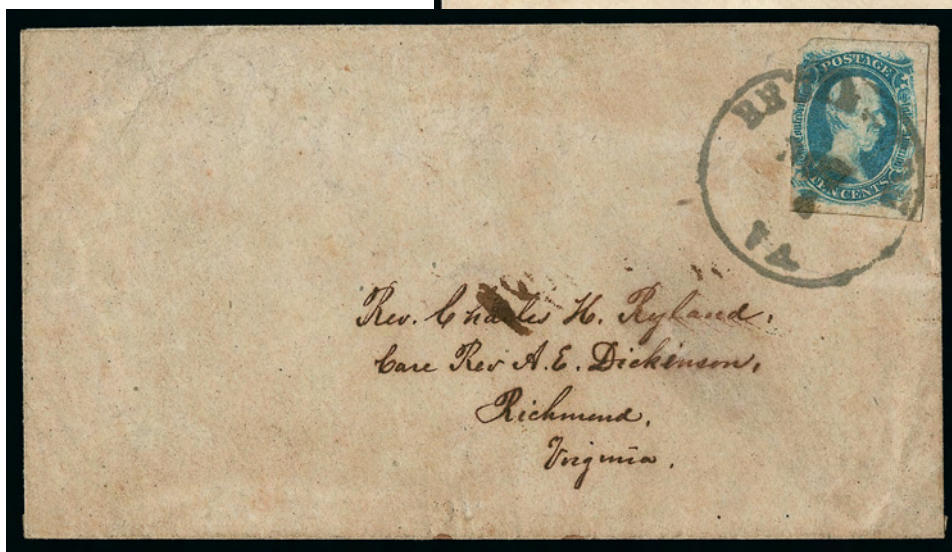 POSTAGE
TEN CENTS
VA
Rev. Charles H. Ryland,
Care Rev A. E. Dickinson,
Richmond,
Virginia.